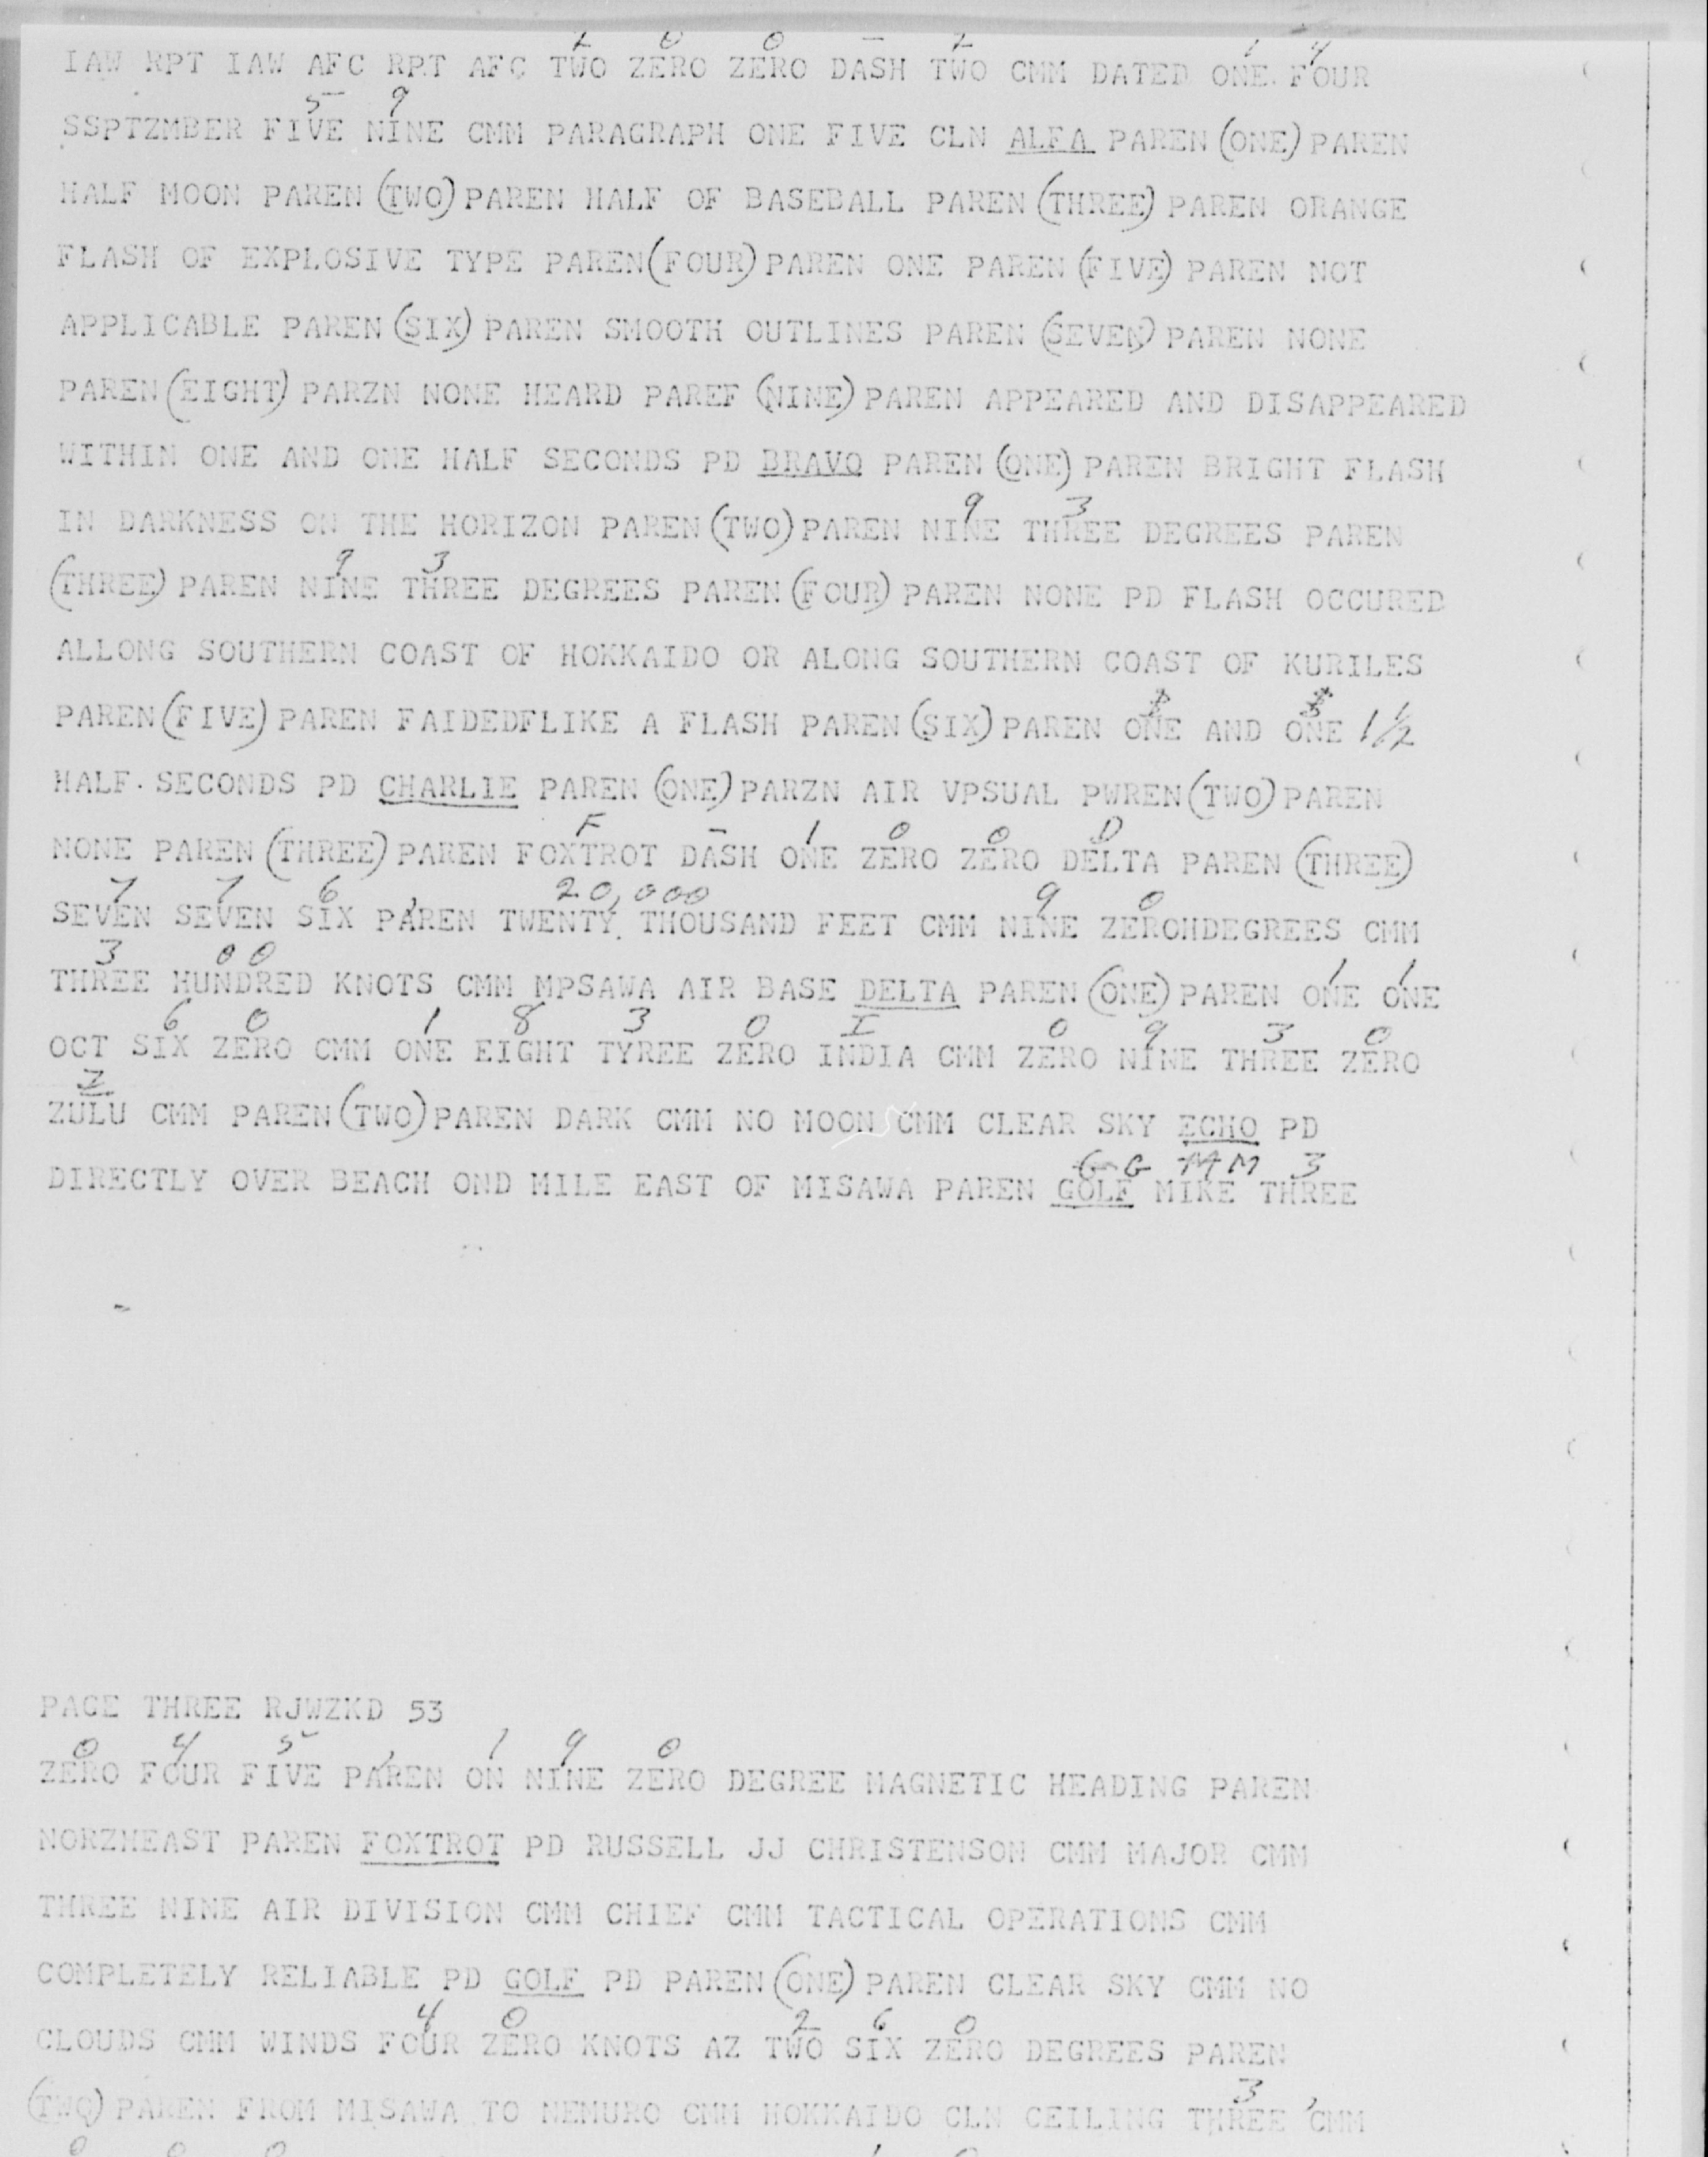 2 0 0 - 2 1 4
IAW RPT IAW AFC RPT AFC TWO ZERO ZERO DASH TWO CMM DATED ONE FOUR
5 9
SSPTZMBER FIVE NINE CMM PARAGRAPH ONE FIVE CLN ALFA PAREN (ONE) PAREN
HALF MOON PAREN (TWO) PAREN HALF OF BASEBALL PAREN (THREE) PAREN ORANGE
FLASH OF EXPLOSIVE TYPE PAREN (FOUR) PAREN ONE PAREN (FIVE) PAREN NOT
APPLICABLE PAREN (SIX) PAREN SMOOTH OUTLINES PAREN (SEVEN) PAREN NONE
PAREN (EIGHT) PARZN NONE HEARD PAREF (NINE) PAREN APPEARED AND DISAPPEARED
WITHIN ONE AND ONE HALF SECONDS PD BRAVO PAREN (ONE) PAREN BRIGHT FLASH
9 3
IN DARKNESS ON THE HORIZON PAREN (TWO) PAREN NINE THREE DEGREES PAREN
9 3
(THREE) PAREN NINE THREE DEGREES PAREN (FOUR) PAREN NONE PD FLASH OCCURED
ALLONG SOUTHERN COAST OF HOKKAIDO OR ALONG SOUTHERN COAST OF KURILES
PAREN (FIVE) PAREN FAIDEDFLIKE A FLASH PAREN (SIX) PAREN ONE AND ONE 1 1/2
HALF. SECONDS PD CHARLIE PAREN (ONE) PARZN AIR VPSUAL PWREN (TWO) PAREN
F - 1 0 0 D
NONE PAREN (THREE) PAREN FOXTROT DASH ONE ZERO ZERO DELTA PAREN (THREE)
7 7 6 , 20,000 9 0
SEVEN SEVEN SIX PAREN TWENTY THOUSAND FEET CMM NINE ZEROHDEGREES CMM
3 0 0
THREE HUNDRED KNOTS CMM MPSAWA AIR BASE DELTA PAREN (ONE) PAREN ONE ONE
1 1
6 0 1 8 3 0 I 0 9 3 0
OCT SIX ZERO CMM ONE EIGHT TYREE ZERO INDIA CMM ZERO NINE THREE ZERO
Z
ZULU CMM PAREN (TWO) PAREN DARK CMM NO MOON CMM CLEAR SKY ECHO PD
G G M M 3
DIRECTLY OVER BEACH OND MILE EAST OF MISAWA PAREN GOLF MIKE THREE
PAGE THREE RJWZKD 53
0 4 5 , 1 9 0
ZERO FOUR FIVE PAREN ON NINE ZERO DEGREE MAGNETIC HEADING PAREN
NORZHEAST PAREN FOXTROT PD RUSSELL JJ CHRISTENSON CMM MAJOR CMM
THREE NINE AIR DIVISION CMM CHIEF CMM TACTICAL OPERATIONS CMM
COMPLETELY RELIABLE PD GOLF PD PAREN (ONE) PAREN CLEAR SKY CMM NO
4 0 2 6 0
CLOUDS CMM WINDS FOUR ZERO KNOTS AZ TWO SIX ZERO DEGREES PAREN
3 ,
(TWO) PAREN FROM MISAWA TO NEMURO CMM HOKKAIDO CLN CEILING THREE CMM
0 0 0 1 0